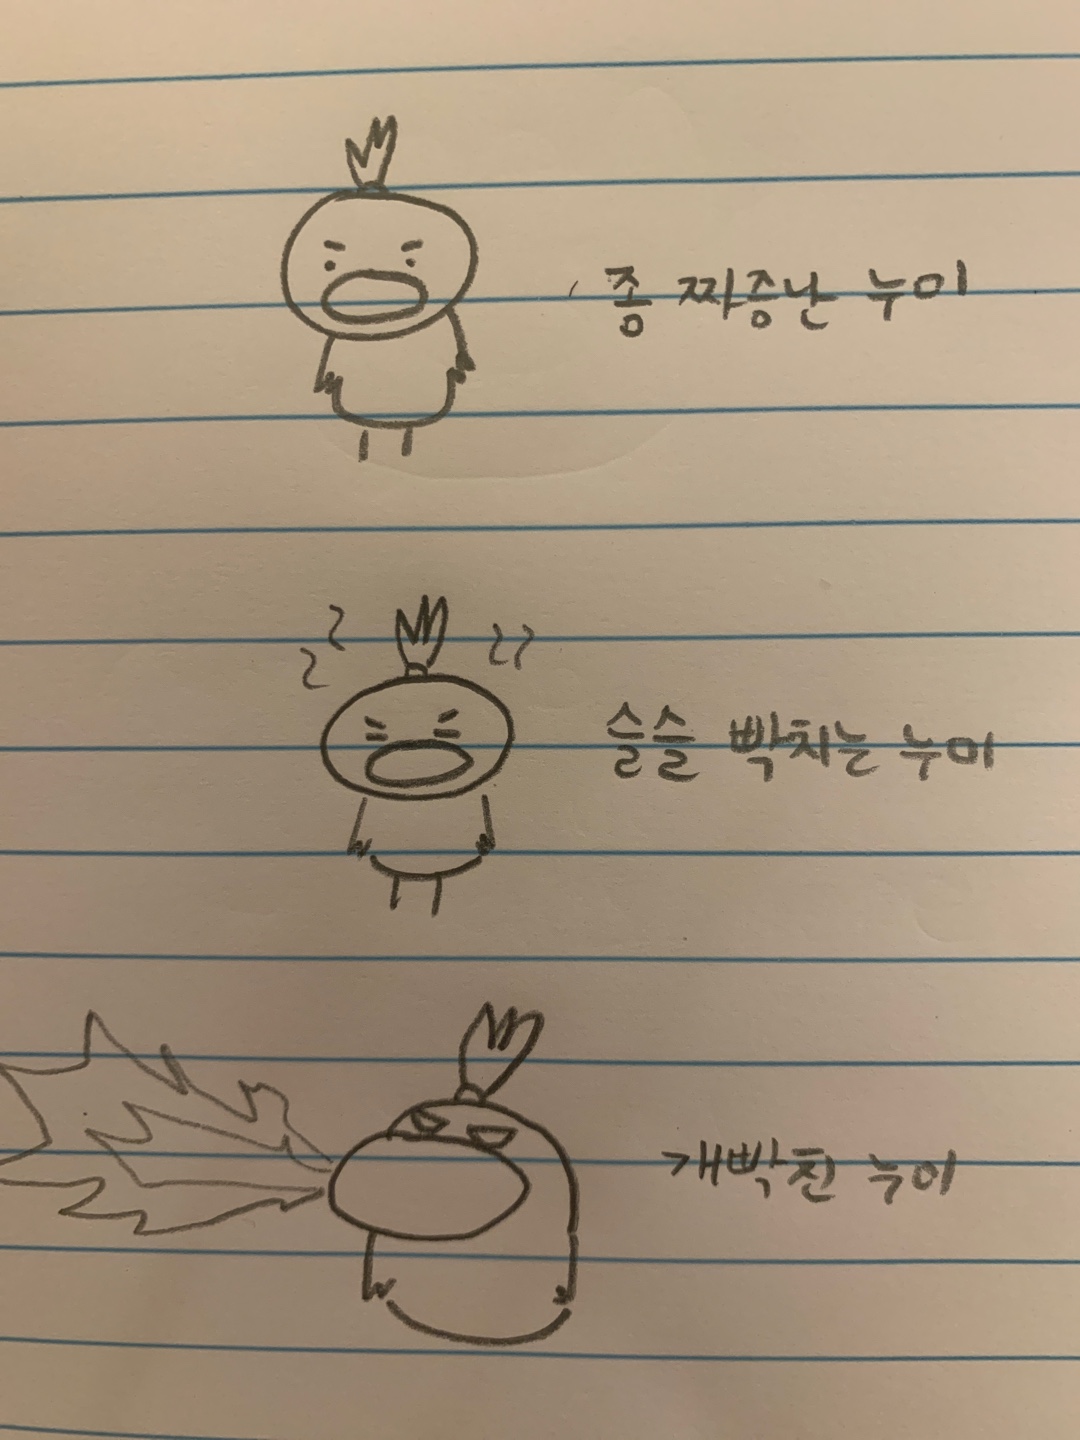 좀 짜증난 누미
슬슬 빡치는 누미
개빡친 누미